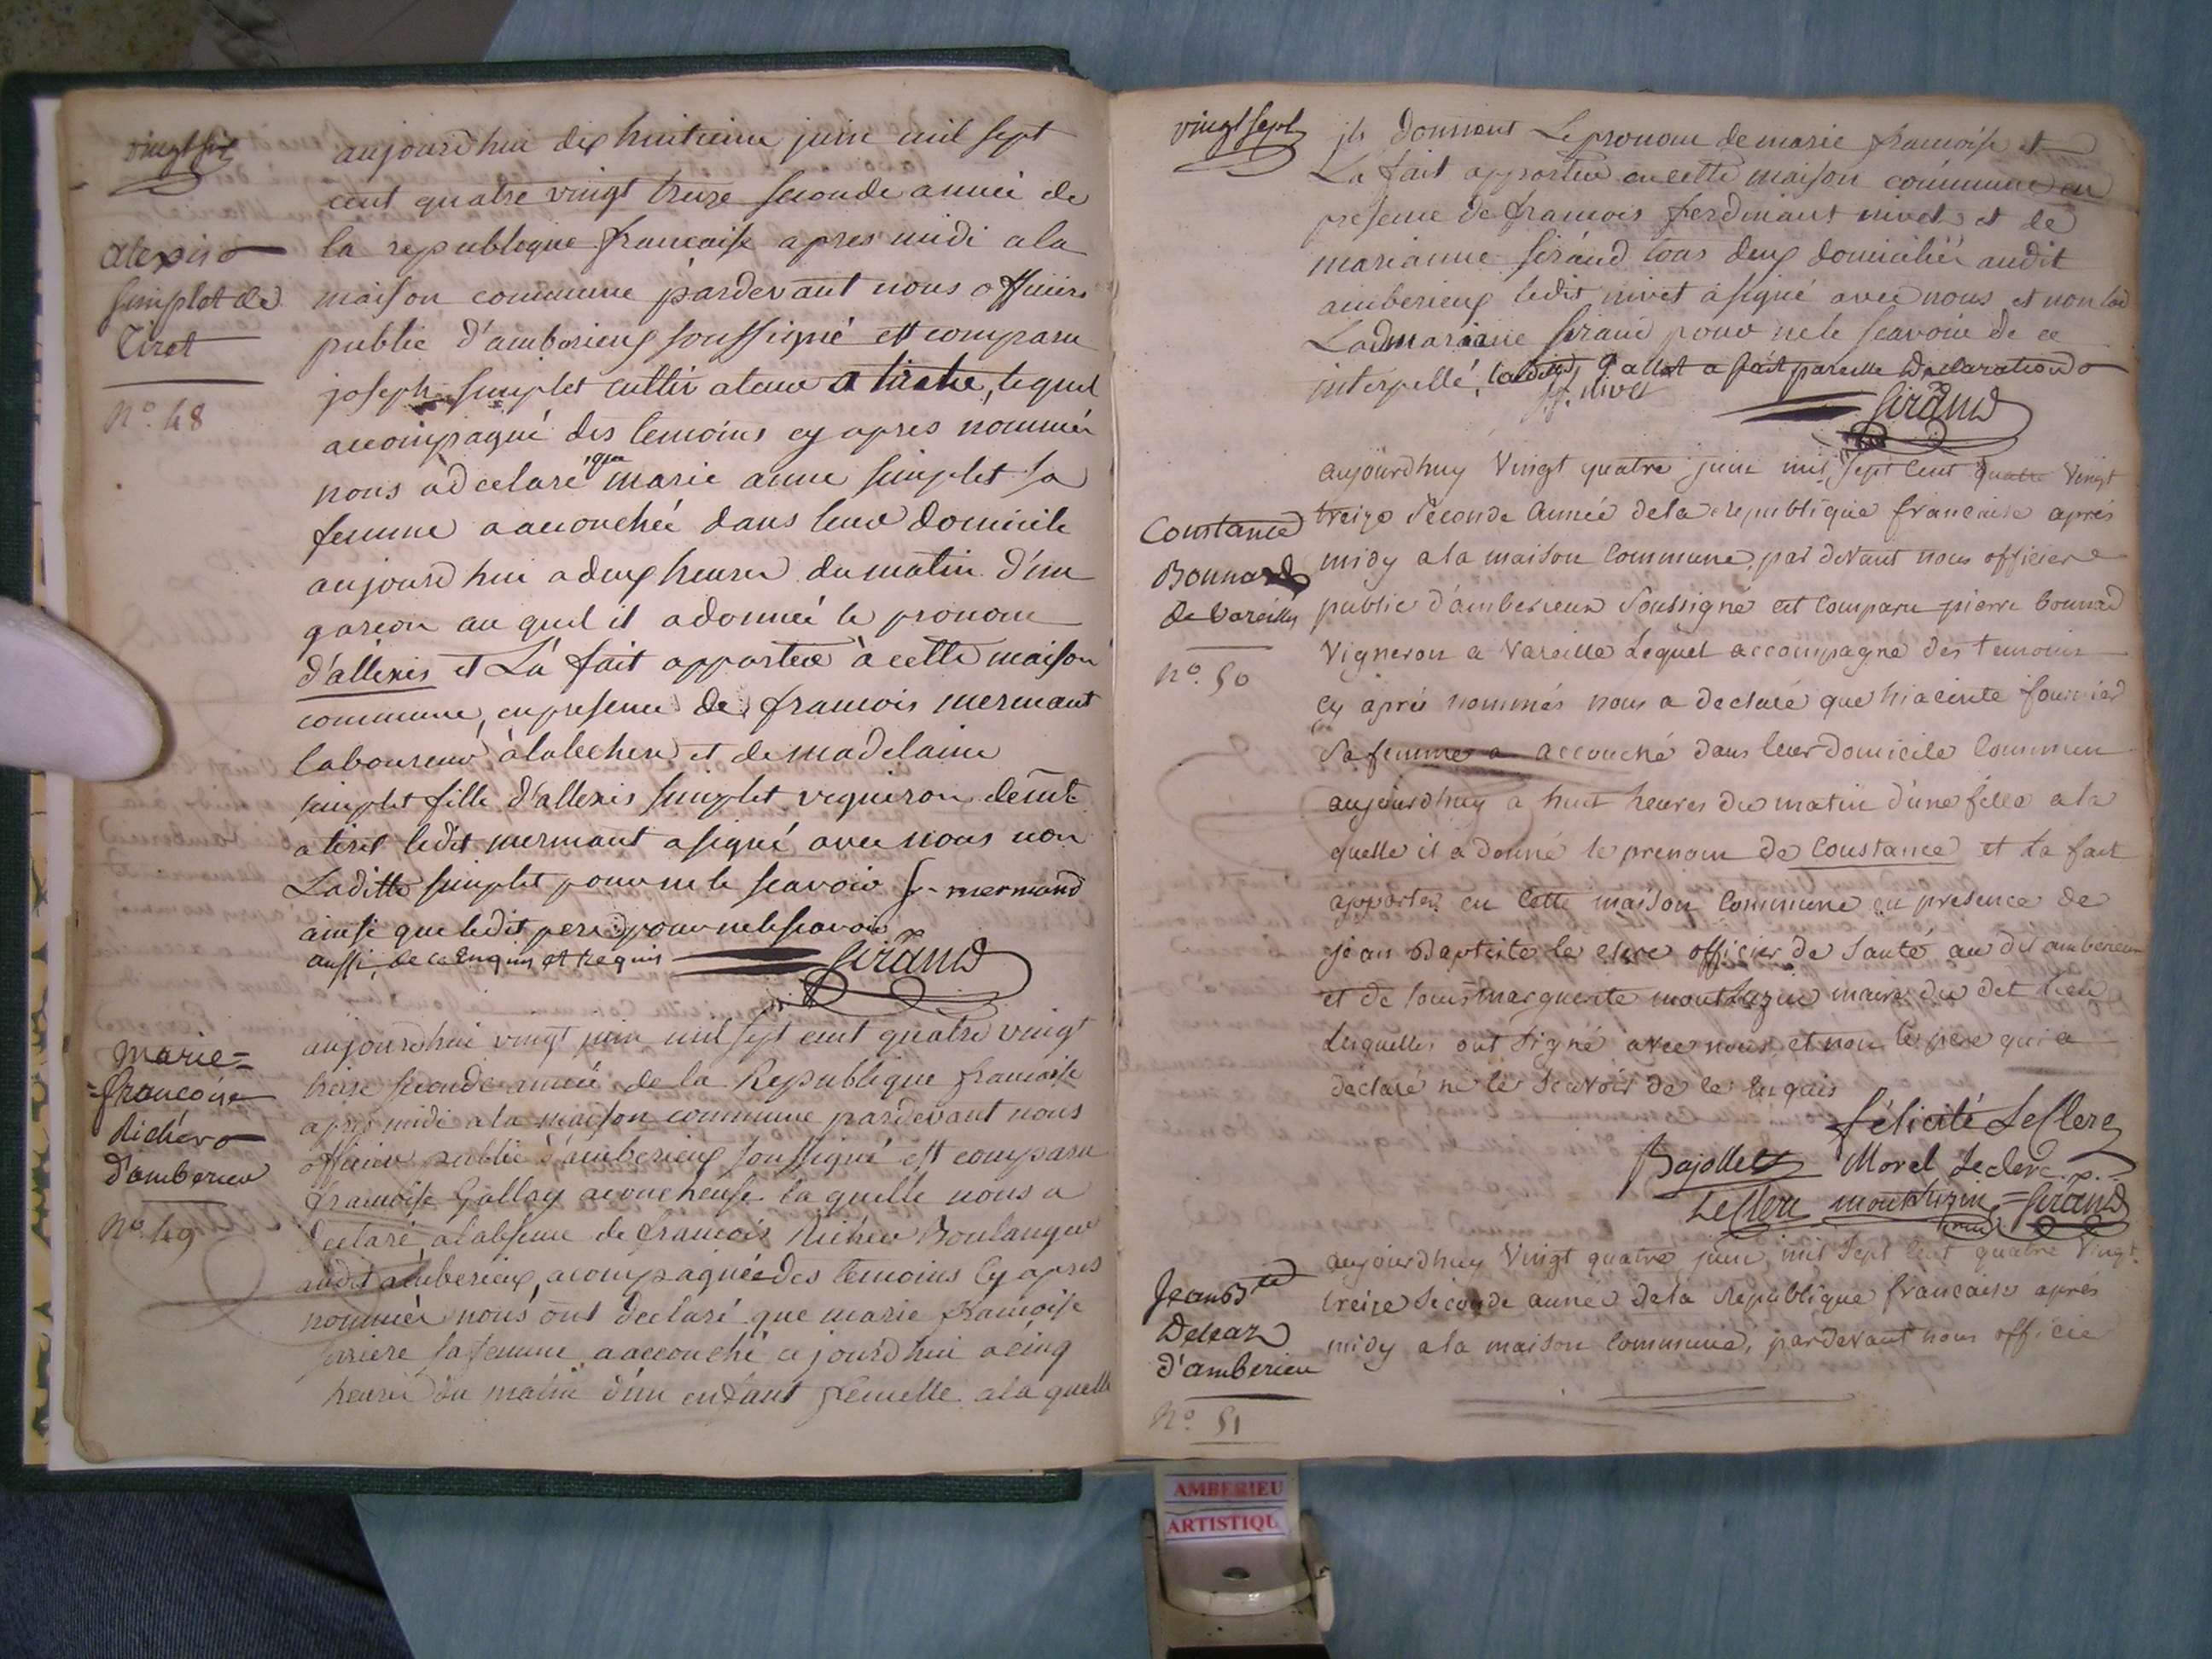 vingt six
aujourd'hui dix huitieme juin mil sept
cent quatre vingt treize seconde année de
la republique francaise apres midi a la
maison commune pardevant nous officiers
public d'amberieux soussigné est comparu
joseph simplet cultivateur a tiret, lequel
acompagné des temoins cy apres nommés
nous a declaré que marie anne simplet sa
femme a accouchée dans leur domicile
aujourd'hui a deux heures du matin d'un
garcon au quel il a donneé le pronom
d'allexis et L'a fait apporter à cette maison
commune, en presence de francois mermant
laboureur à labechere et de madelaine
simplet fille d'allexis simplet vigneron demt
a tiret ledit mermant a signé avec nous non
Laditte simplet pour ne le scavoir f. mermand
ainsi que ledit pere pour ne le scavoir
aussi, de ce Enquis et Requis Sirand
alexis
simplet de
Tiret
No. 48
aujourdhui vingt juin mil sept cent quatre vingt
treise seconde année de la Republique francoise
apres midi a la maison commune pardevant nous
officier public d'amberieux soussigné est comparu
francoise Gallay acoucheuse la quelle nous a
declaré, a l'absence de francois Richer Boulanger
audit amberieux, acompagnée des temoins Cy apres
nommés nous ont declaré que marie francoise
sa femme a accouché cejourd'hui a cinq
heures du matin d'un enfant femelle a la quelle
marie=
=francoise
Richer
d'amberieu
No. 49
vingt sept
ils donnent Le pronom de marie francoise et
La fait apporter en cette maison commune en
presence de francois ferdinant nivet et de
marianne sirand tous deux domiciliés audit
amberieux ledit nivet a signé avec nous et non lad
Lad mariane sirand pour ne le scavoir de ce
interpellé, Gallet a fait pareille Declaration
f. f. nivet
Sirand
aujourdhuy Vingt quatre juin mil sept Cent quatre Vingt
treize Seconde Année dela republique francaise aprés
midy a la maison Commune, par devant nous officiere
public d'amberieux Soussigné est Comparu pierre bonnard
Vigneron a Vareille Lequel accompagné des temoins
Cy aprés nommés nous a declaré que hiacinte fournier
Sa femme a accouché dans leur domicile Commun
aujourdhuy a huit heures du matin d'une fille a la
quelle il a donné le prenom de Constance et La fait
apporter en Cette maison Commune en presence de
jean Baptiste le clerc officier de Santé au dit amberieux
et de Louis marguerite montluzin maire du dit Lieu
Lesquelles ont Signé avec nous, et non le pere qui a
declaré ne le Scavoir de ce Enquis
félicité LeClerc
Bajollet Morel Leclerc
LeClerc montluzin Sirand
Constance
Bonnard
de Vareilles
No. 50
aujourdhuy Vingt quatre juin, mil Sept Cent quatre Vingt
treize Seconde année dela Republique francaise aprés
midy a la maison Commune, pardevant nous officie
Jean Bte
d'amberieu
No. 51
AMBERIEU
ARTISTIQU